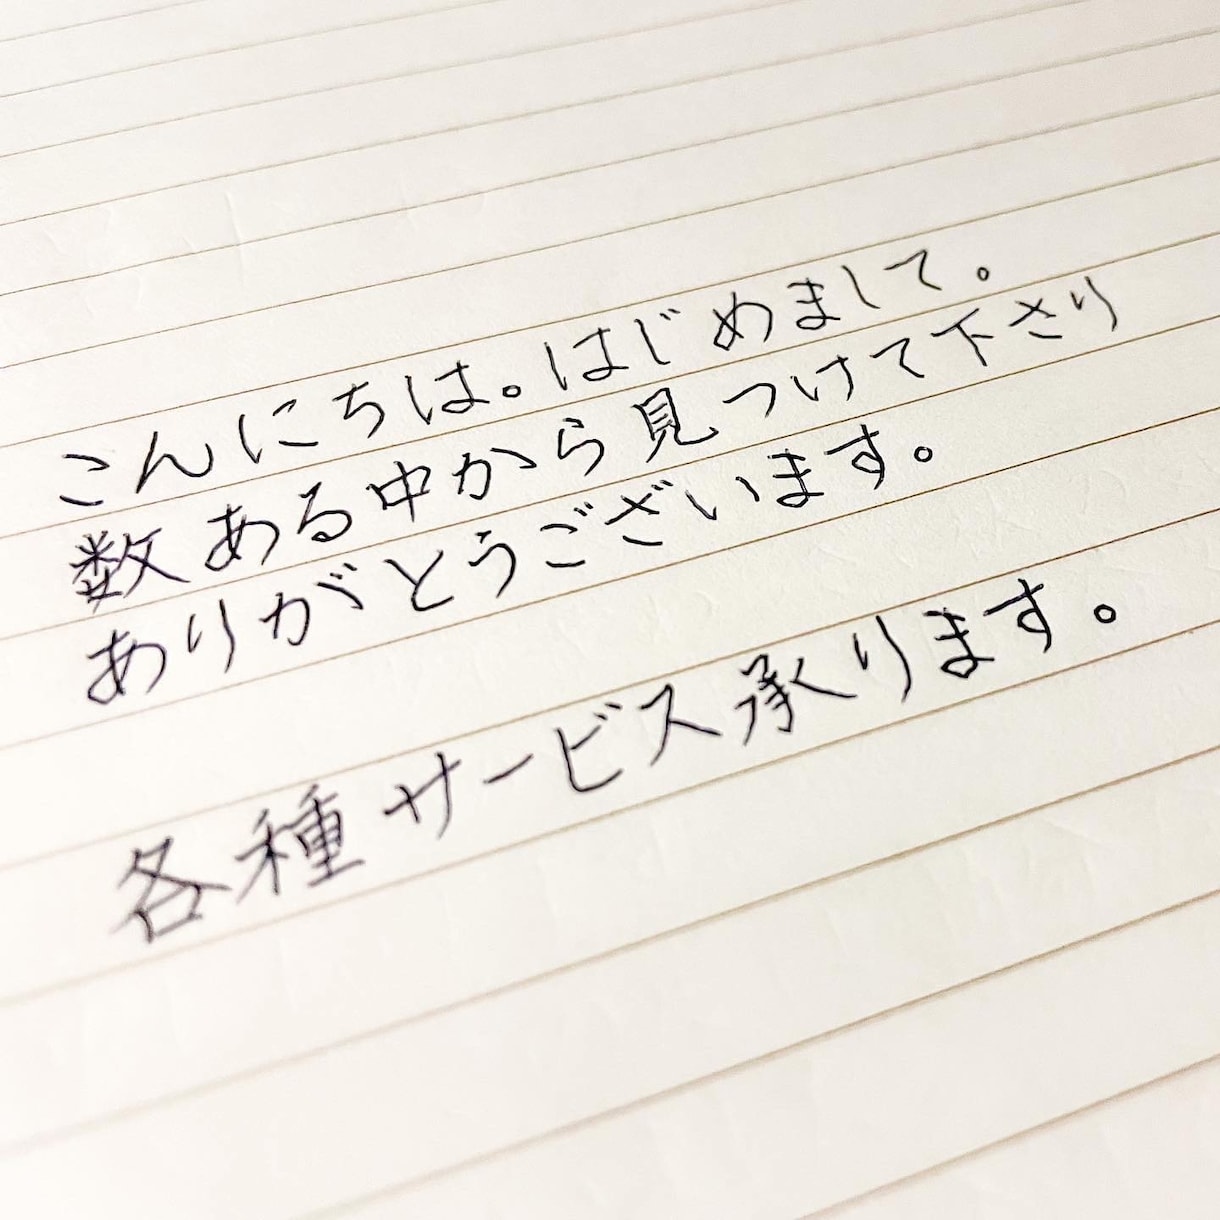 こんにちは。はじめまして。
数ある中から見つけて下さり
ありがとうございます。
各種サービス承ります。